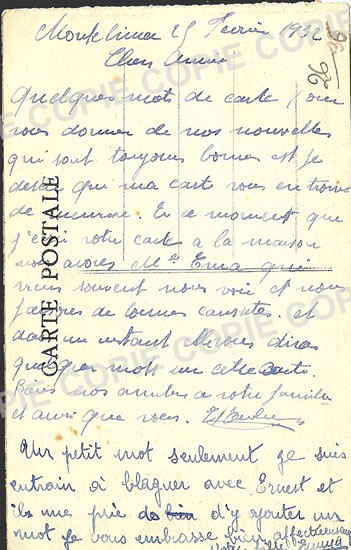 Montelimar 25 Fevrier 1932
Chers Amis
96
Quelques mots de carte pour
vous donner de nos nouvelles
qui sont toujours bonnes est je
desire que ma cart vous en trouve
de meme. En ce moment que
j'écris votre carte a la maison
nous avons Me Erna qui
viens souvent nous voir et nous
de bonnes causites. et
dans un instant dires
quelques mots un cette carte.
Bons nos amities a votre famille
et ainsi que vous.
CARTE POSTALE
Un petit mot seulement je suis
entrain à blaguer avec Ernest et
ils me prie de bien d'y ajouter un
mot Je vous embrasse bien affectueusement
COPIE COPIE COPIE